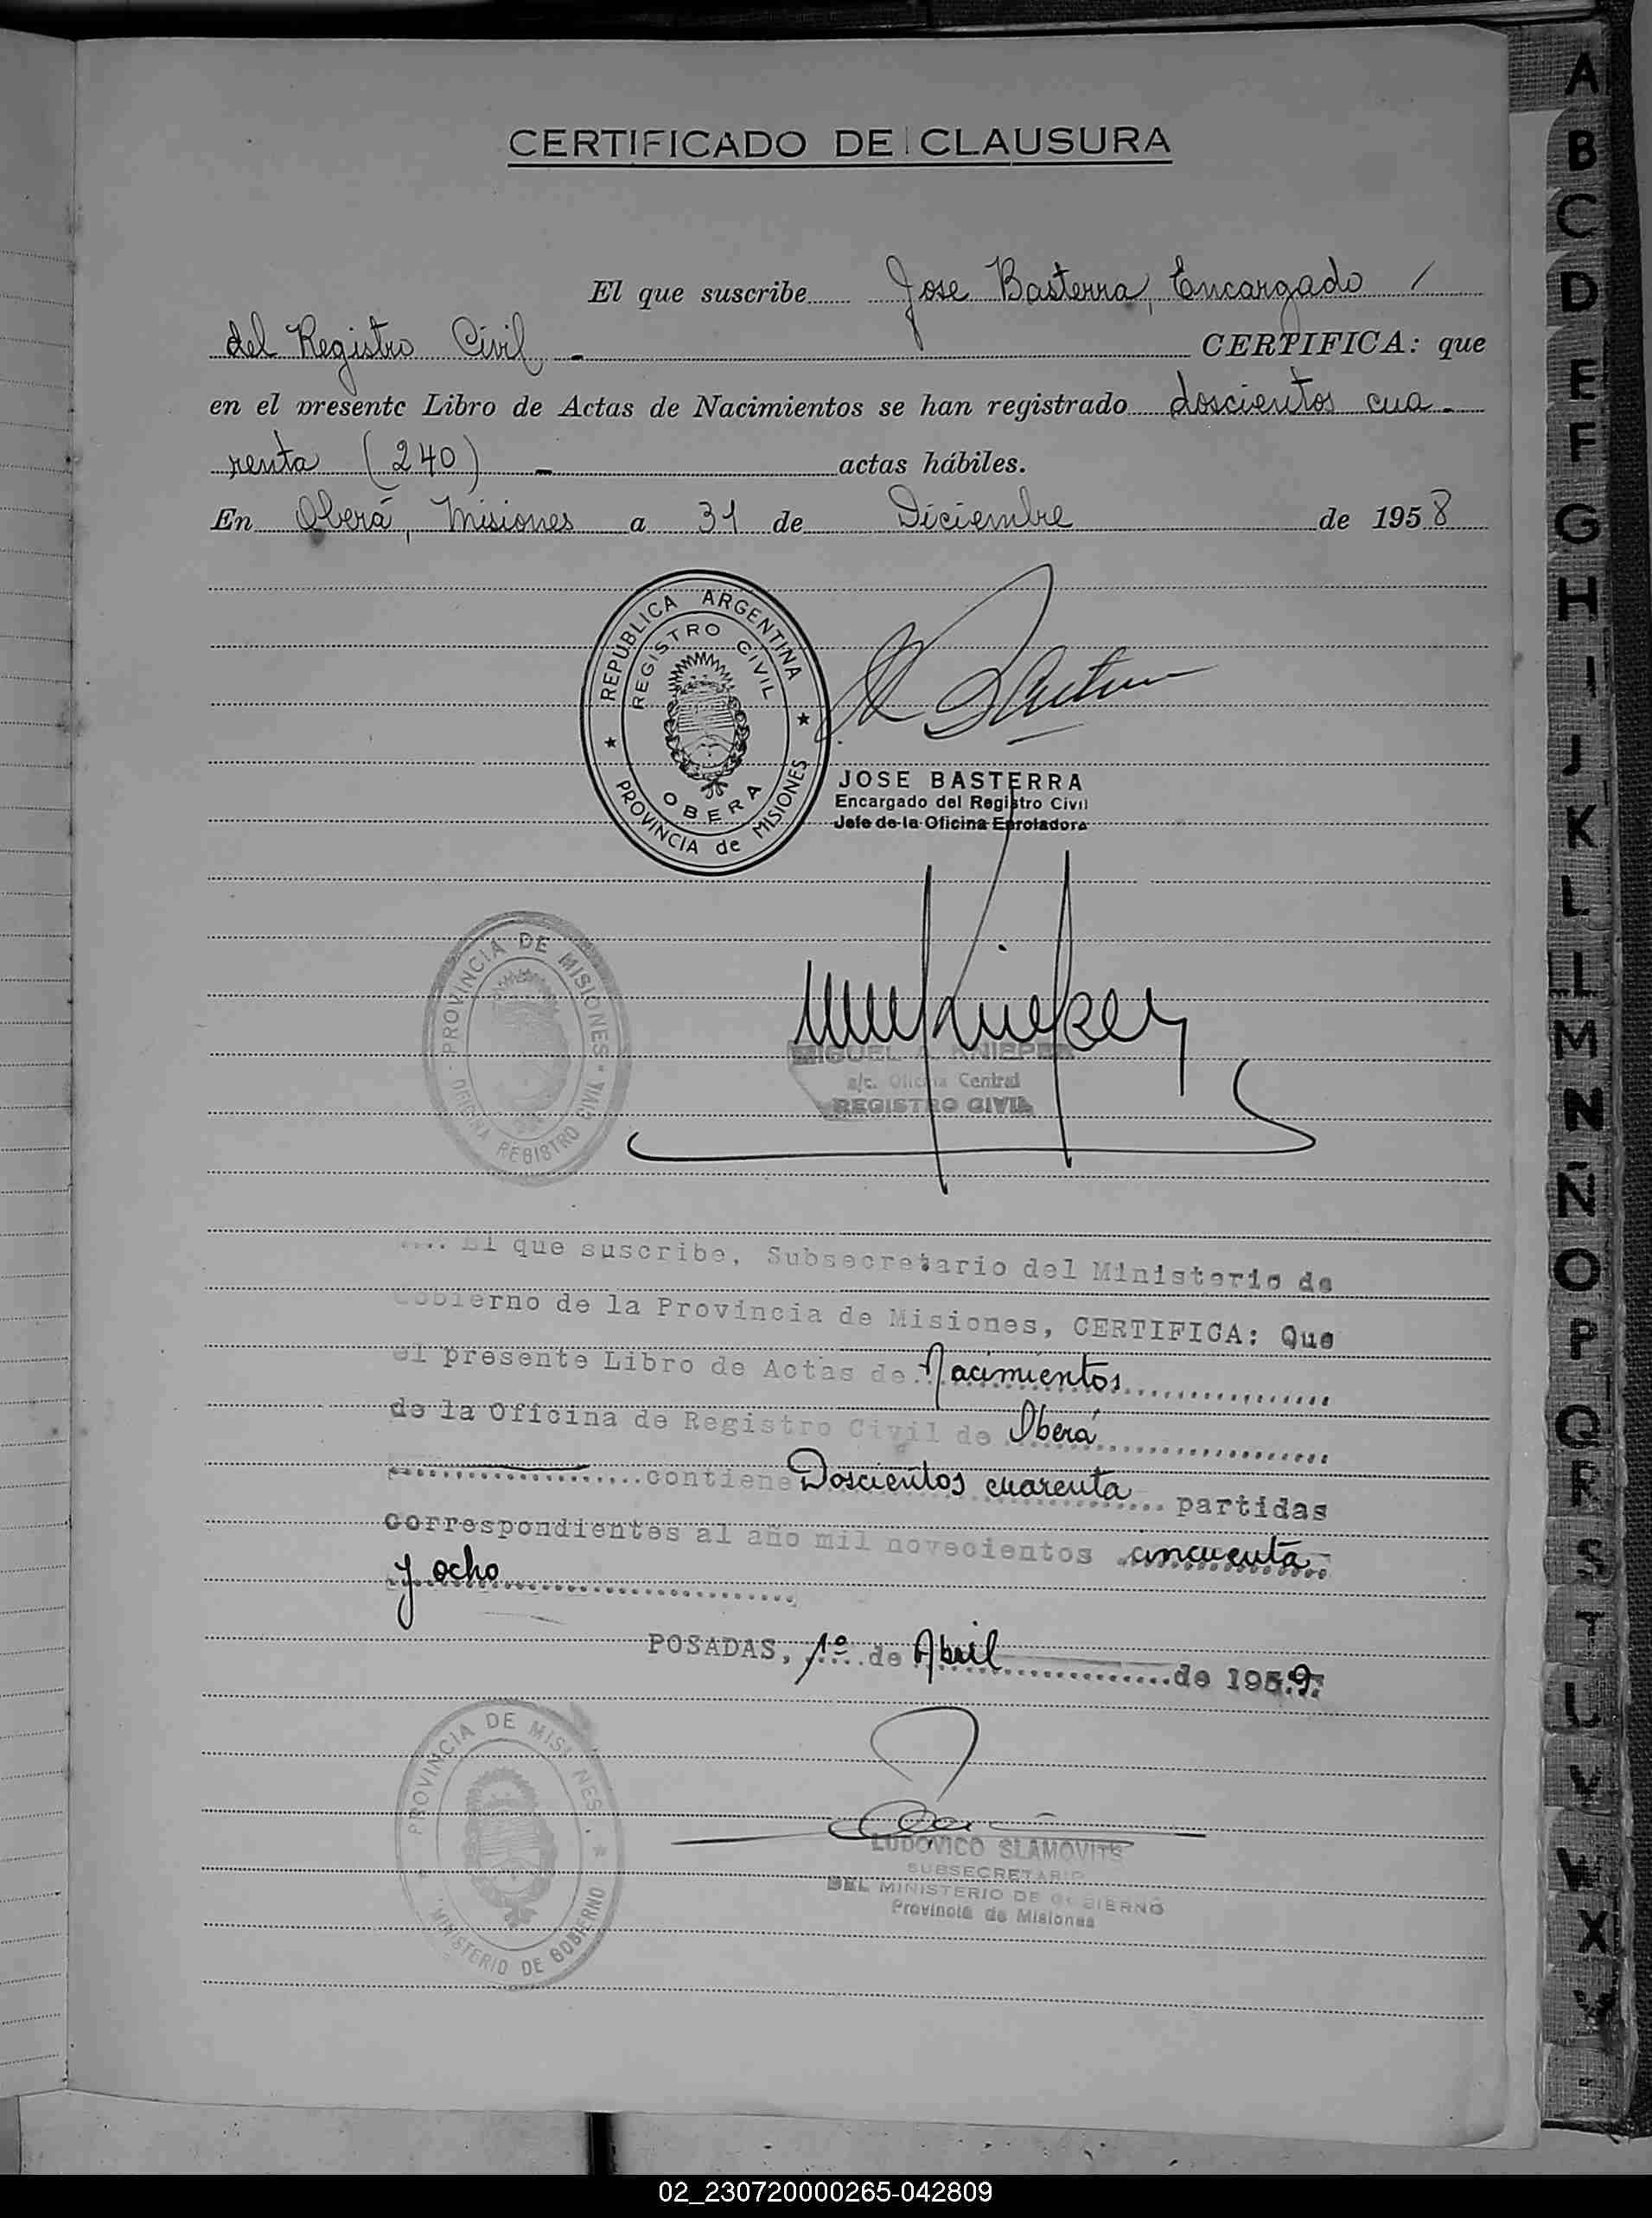 CERTIFICADO DE CLAUSURA
El que suscribe Jose Basterra, Encargado
del Registro Civil - CERTIFICA: que
en el presente Libro de Actas de Nacimientos se han registrado doscientos cua-
renta (240) - actas hábiles.
En Oberá, Misiones a 31 de Diciembre de 1958
REPÚBLICA ARGENTINA
REGISTRO CIVIL
OBERA
PROVINCIA de MISIONES
JOSE BASTERRA
Encargado del Registro Civil
Jefe de la Oficina Enroladora
PROVINCIA DE MISIONES
OFICINA REGISTRO CIVIL
MIGUEL A. KNIEPER
a/c. Oficina Central
REGISTRO CIVIL
El que suscribe, Subsecretario del Ministerio de
Gobierno de la Provincia de Misiones, CERTIFICA: Que
el presente Libro de Actas de Nacimientos
de la Oficina de Registro Civil de Oberá
contiene Doscientos cuarenta partidas
correspondientes al año mil novecientos cincuenta
y ocho
POSADAS, 1º de Abril de 1959
PROVINCIA DE MISIONES
MINISTERIO DE GOBIERNO
LUDOVICO SLAMOVITS
SUBSECRETARIO
DEL MINISTERIO DE GOBIERNO
Provincia de Misiones
A
B
C
D
E
F
G
H
I
J
K
L
M
N
Ñ
O
P
Q
R
S
T
U
V
X
02_230720000265-042809